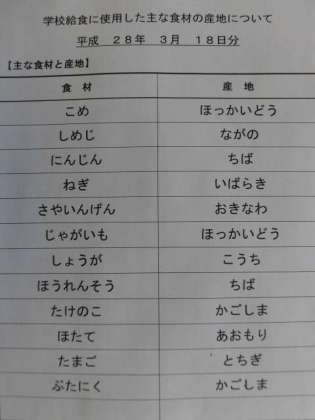 学校給食に使用した主な食材の産地について
平成 28年 3月 18日分
【主な食材と産地】
食 材 産 地
こめ ほっかいどう
しめじ ながの
にんじん ちば
ねぎ いばらき
さやいんげん おきなわ
じゃがいも ほっかいどう
しょうが こうち
ほうれんそう ちば
たけのこ かごしま
ほたて あおもり
たまご とちぎ
ぶたにく かごしま